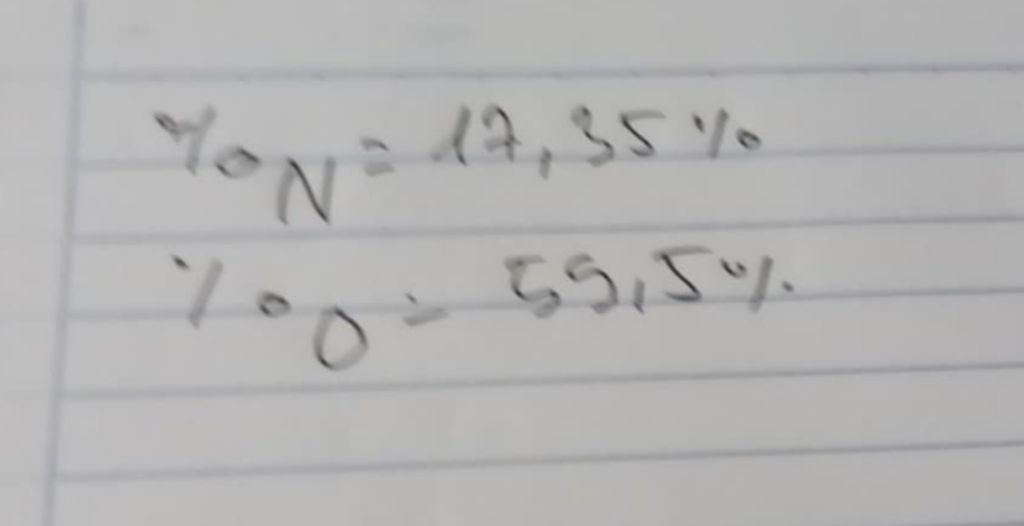 %N = 17,35%
%O = 59,5%